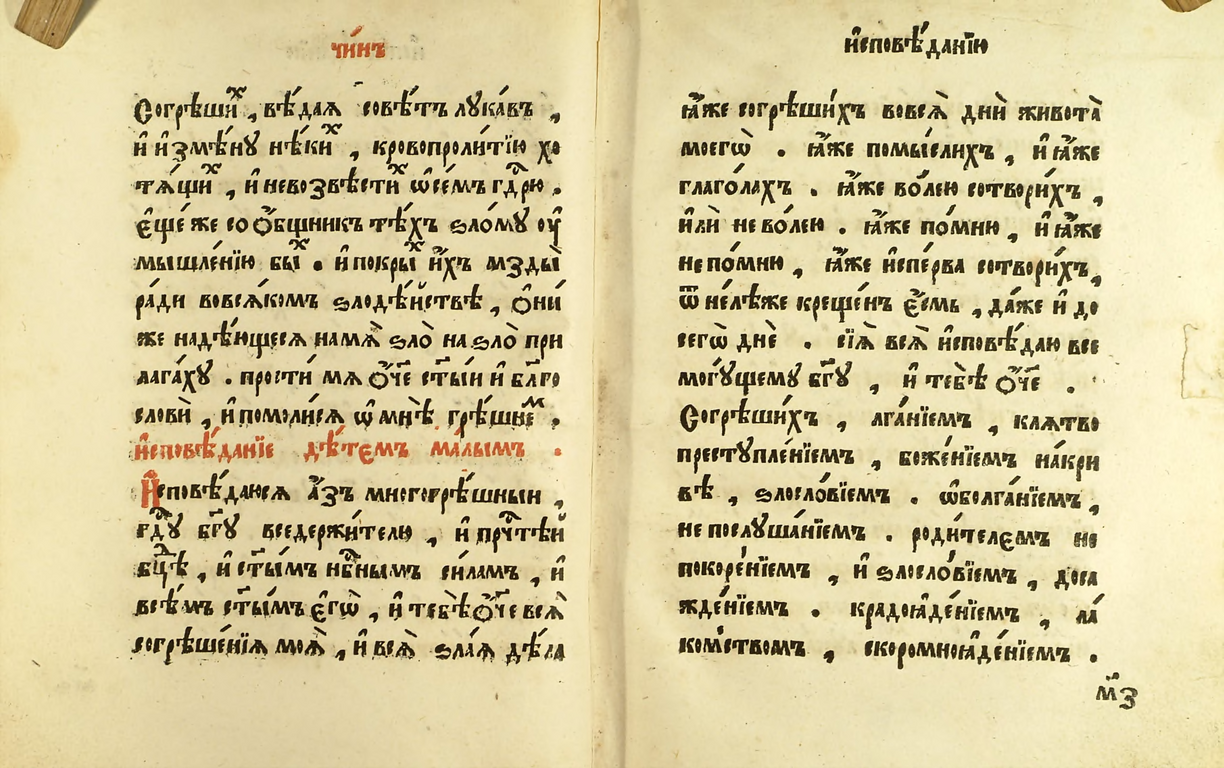 чи́нъ
Согрѣши́ⷯ, вѣ́дая совѣ́тъ лука́въ,
и҆ и҆змѣ́нꙋ нѣ́киⷯ, кровопроли́тїю хо
тѧ́щиⷯ, и҆ невозвѣсти́ⷯ ѡ҆се́мъ гдⷭ҇рю.
є҆ще́ же со Ѻ҆́бщникъ тѣ́хъ ѕло́мꙋ оу҆
мышле́нїю бы́ⷯ. и҆ покры́ⷯ и҆́хъ мзды̀
ра́ди вовсѧ́комъ ѕлодѣ́йствѣ, Ѻ҆ни́
же надѣ́ющесѧ намѧ̀ ѕло̀ на ѕло̀ при
лага́хꙋ. прости́ мѧ Ѻ҆́ч҃е ст҃ы́и и҆ бл҃го
словѝ, и҆ помоли́сѧ ѡ҆ мнѣ̀ грѣ́шнеⷨ.
и҆сповѣ́данїе дѣ́темъ ма́лымъ.
И҆сповѣ́даюсѧ а҆́зъ многогрѣ́шныи,
гдⷭ҇ꙋ бг҃ꙋ вседержи́телю, и҆ прчⷭ҇тѣй
бцⷣѣ, и҆ ст҃ы́мъ нб҃нымъ си́ламъ, и҆
всѣ́мъ ст҃ы́мъ є҆гѡ̀, и҆ тебѣ̀ Ѻ҆́ч҃е всѧ̀
согрѣше́нїѧ моѧ̀, и҆ всѧ̀ ѕла́ѧ дѣ́ла
и҆сповѣ́данїю
ꙗ҆́же согрѣши́хъ вовсѧ̀ днѝ живота̀
моегѡ̀. ꙗ҆́же помы́слихъ, и҆ ꙗ҆́же
глаго́лахъ. ꙗ҆́же во́лею сотвори́хъ,
и҆лѝ не во́лею. ꙗ҆́же по́мню, и҆ ꙗ҆́же
не по́мню, ꙗ҆́же и҆спе́рва сотвори́хъ,
ѿ не́лѣже креще́нъ є҆́смь, да́же и҆ до
сегѡ̀ днѐ. сїѧ̀ всѧ̀ и҆сповѣ́даю все
могꙋ́щемꙋ бг҃ꙋ, и҆ тебѣ̀ Ѻ҆́ч҃е.
Согрѣши́хъ, лга́нїемъ, клѧтво
престꙋпле́нїемъ, боже́нїемъ на́кри
вѣ, ѕлосло́вїемъ. ѡ҆болга́нїемъ,
не послꙋша́нїемъ. роди́телемъ не
покоре́нїемъ, и҆ ѕлосло́вїемъ, доса
жде́нїемъ. крадоꙗде́нїемъ, ла́
комъством, скоромноꙗде́нїемъ.
м҃з